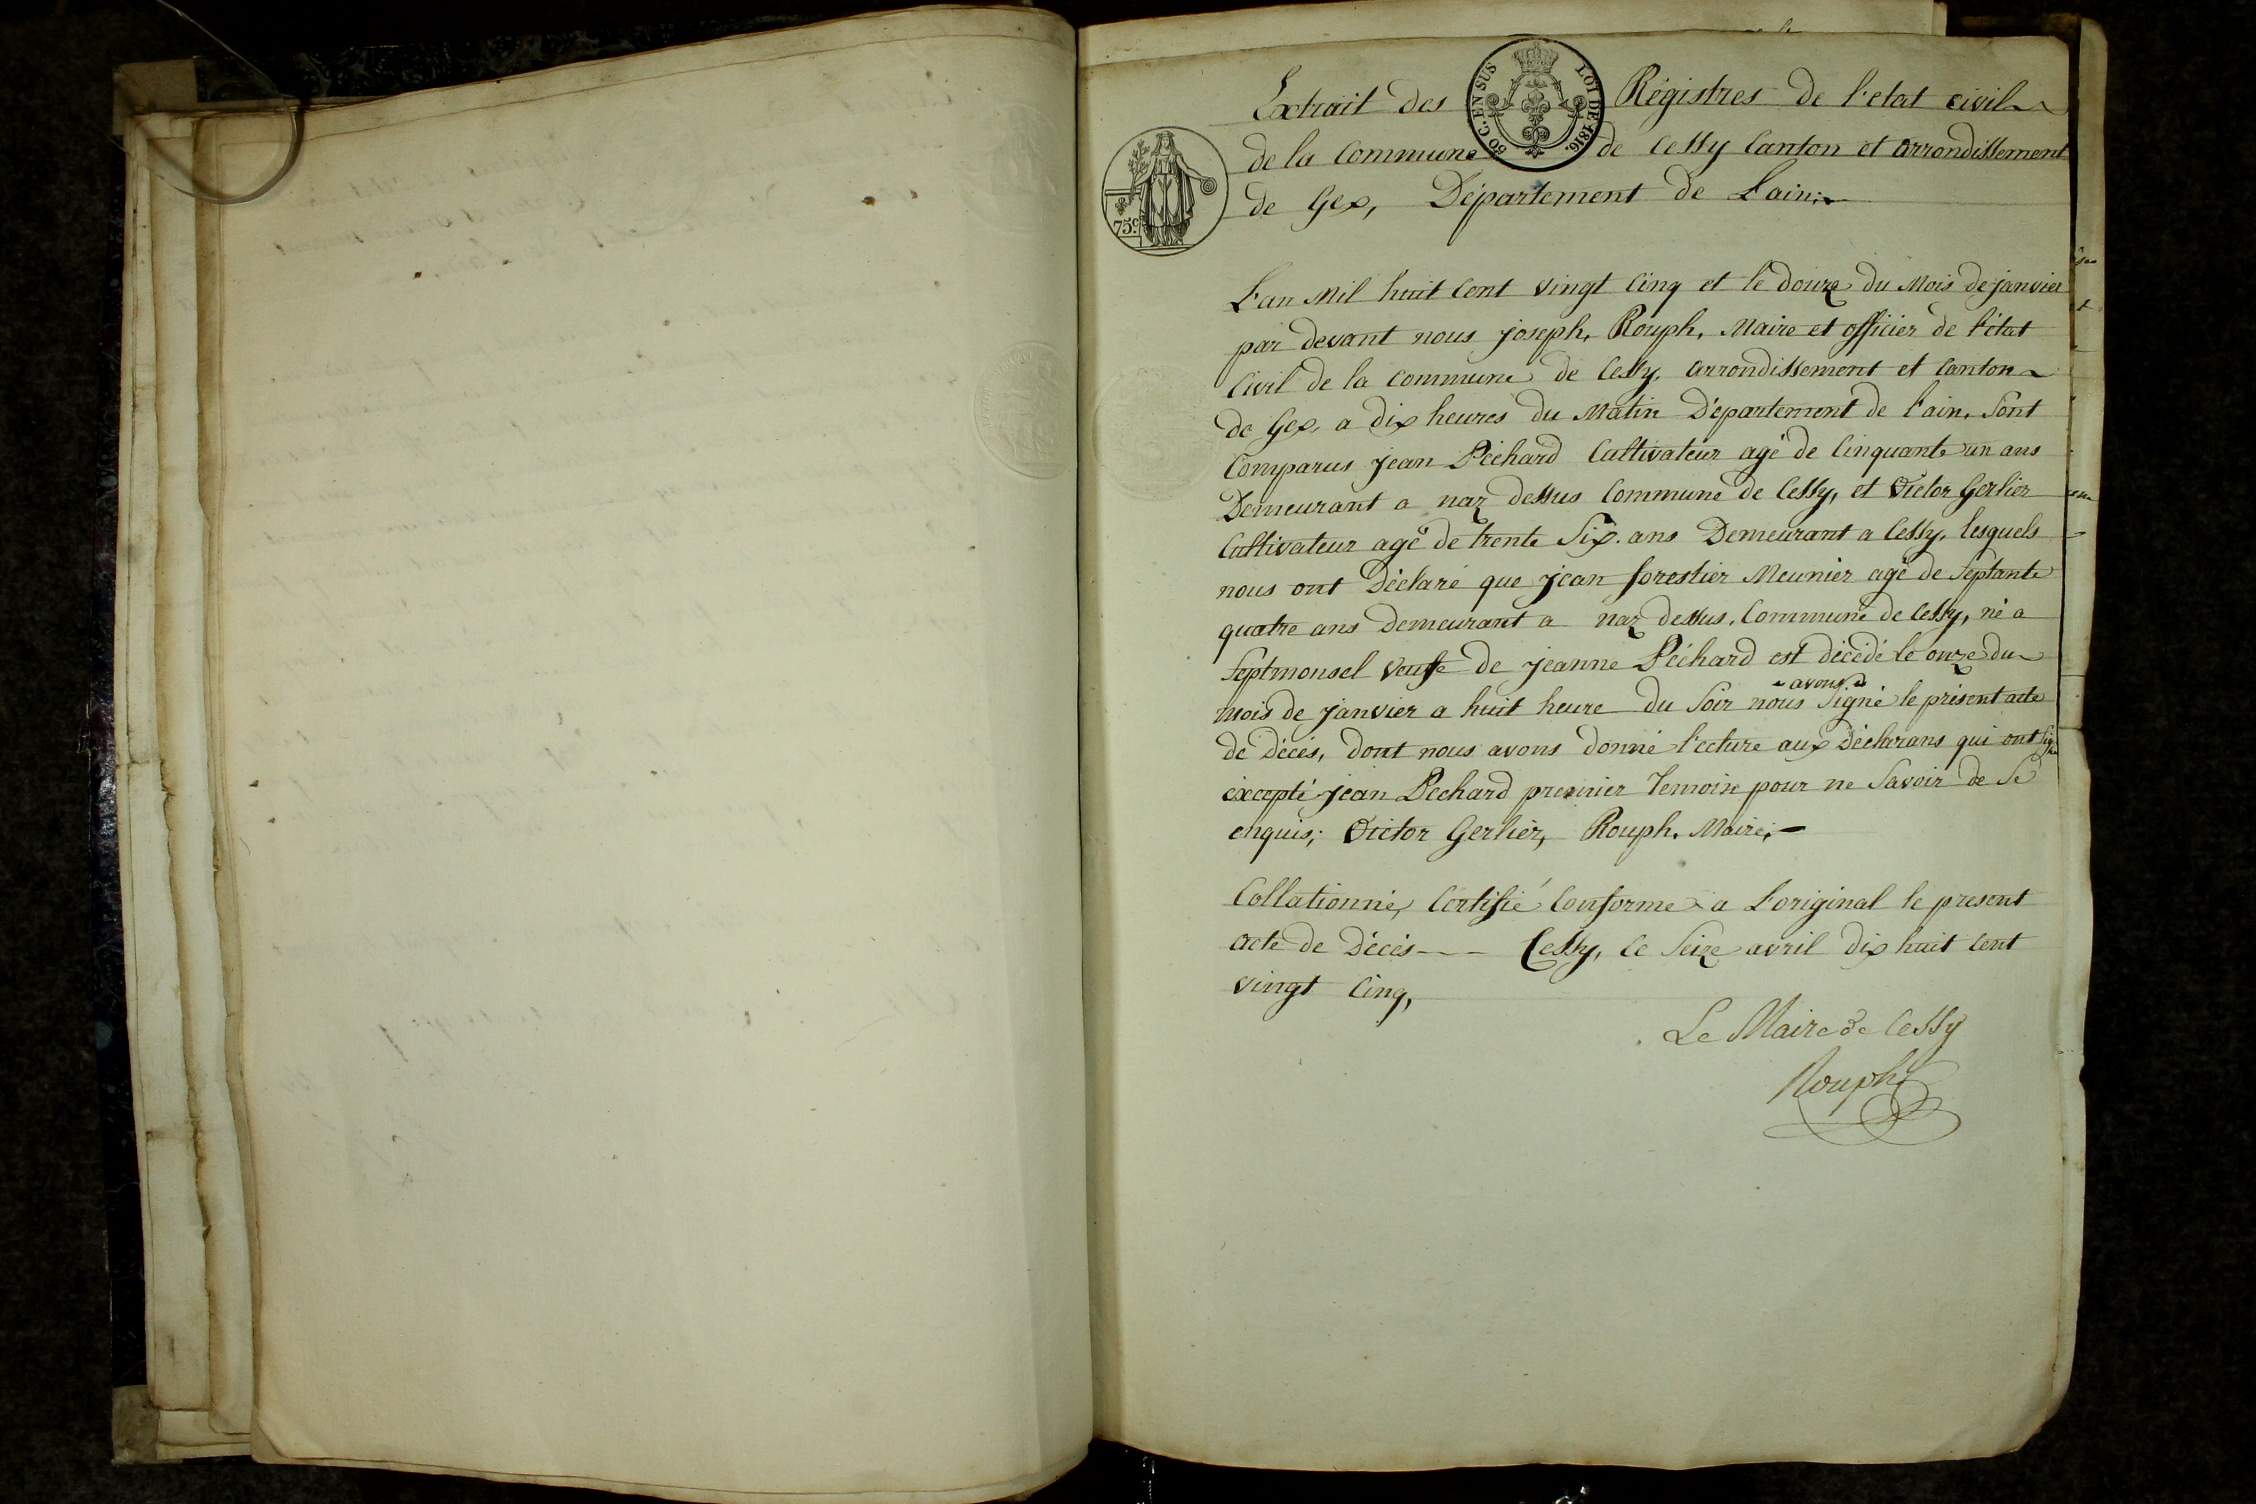 Extrait des Régistres de l'etat civil
50 C. EN SUS LOI DE 1816.
de la Commune de Cessy Canton et arrondissement
75c
de Gex, Département de L'ain;
L'an Mil huit Cent vingt Cinq et le douze du Mois de janvier
par devant nous joseph, Rouph, Maire et officier de l'état
Civil de la commune de Cessy, arrondissement et Canton
de Gex, a dix heures du Matin Département de l'ain, Sont
Comparus jean Péchard Cultivateur agé de Cinquante un ans
Demeurant a naz dessus Commune de Cessy, et Victor Gerlier
Cultivateur agé de trente Six ans Demeurant a Cessy, lesquels
nous ont Déclaré que jean forestier Meunier agé de Septante
quatre ans Demeurant a naz dessus, Commune de Cessy, né a
Septmonsel veuffe de jeanne Péchard est décédé le onze du
mois de janvier a huit heure du Soir nous avons Signé le présent acte
de Décès, dont nous avons donné l'ecture aux Déclarans qui ont Signé
éxcepté jean Péchard premier Temoin pour ne Savoir de Se
enquis; Victor Gerlier, Rouph, Maire;
Collationné, Certifié Conforme a L'original le present
acte de Décès --- Cessy, le Seize avril dix huit Cent
vingt Cinq,
Le Maire de Cessy
Rouph